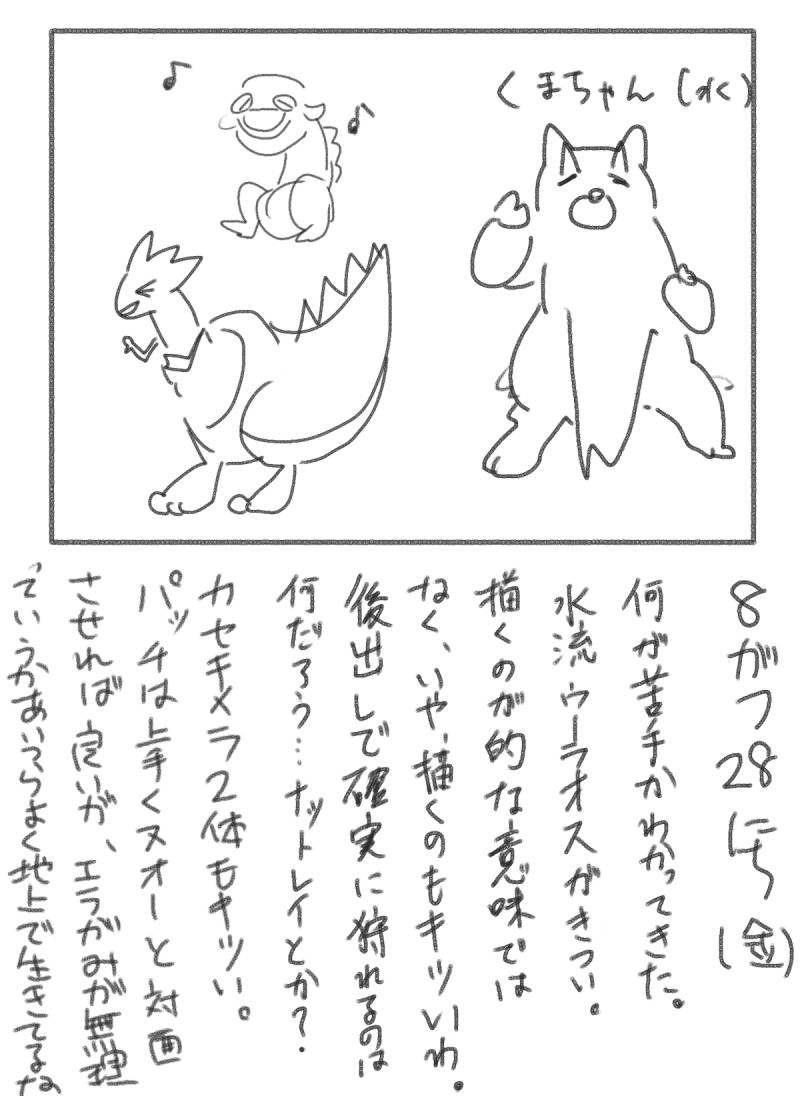 くまちゃん(水)
8がつ28にち(金)
何が苦手かわかってきた。
水流ウーラオスがきつい。
描くのが的な意味では
なく、いや、描くのもキツいわ。
後出しで確実に狩れるのは
何だろう…ナットレイとか?
カセキメラ2体もキツい。
パッチは上手くヌオーと対面
させれば良いが、エラがみが無理
ていうかあいつらよく地上で生きてるな